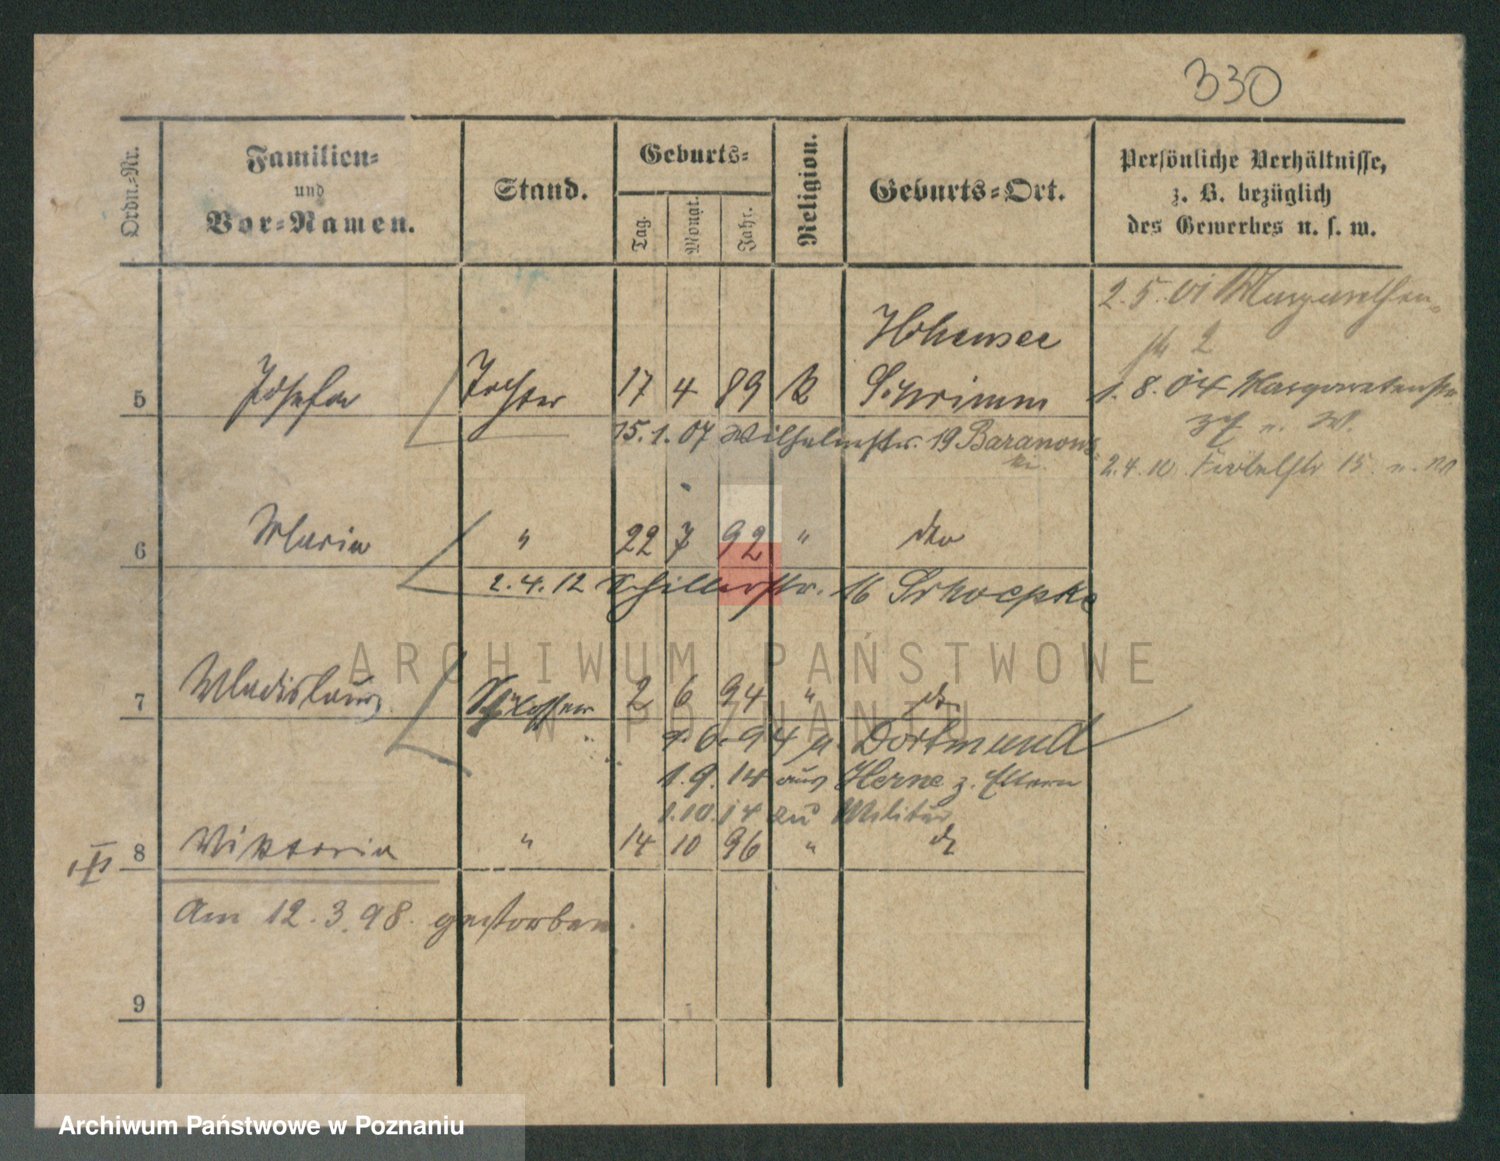 330
Ordn.-Nr.
Familien-
und
Vor-Namen.
Stand.
Geburts-
Tag.
Monat.
Jahr.
Religion.
Geburts-Ort.
Persönliche Verhältnisse,
z. B. bezüglich
des Gewerbes u. s. w.
2. 5. 01 Margarethen
2
Hohensee
5 Josefa Tochter 17 4 89 k Schrimm
1. 8. 04 Margaretenstr
15. 1. 07 Wilhelmstr. 19 Baranows
ki.
2. 4. 10 15
6 Maria " 22 7 92 " dto
2. 4. 12 Schillerstr. 16 Skoczpke
ARCHIWUM PAŃSTWOWE
W POZNANIU
7 Wladislaus Schlosser 2 6 94 " do
9. 6. 94 n. Dortmund
1. 9. 14 aus Herne z. Eltern
1. 10. 14 zu Militär
8 Viktoria " 14 10 96 " do
Am 12. 3. 98. gestorben.
9
Archiwum Państwowe w Poznaniu